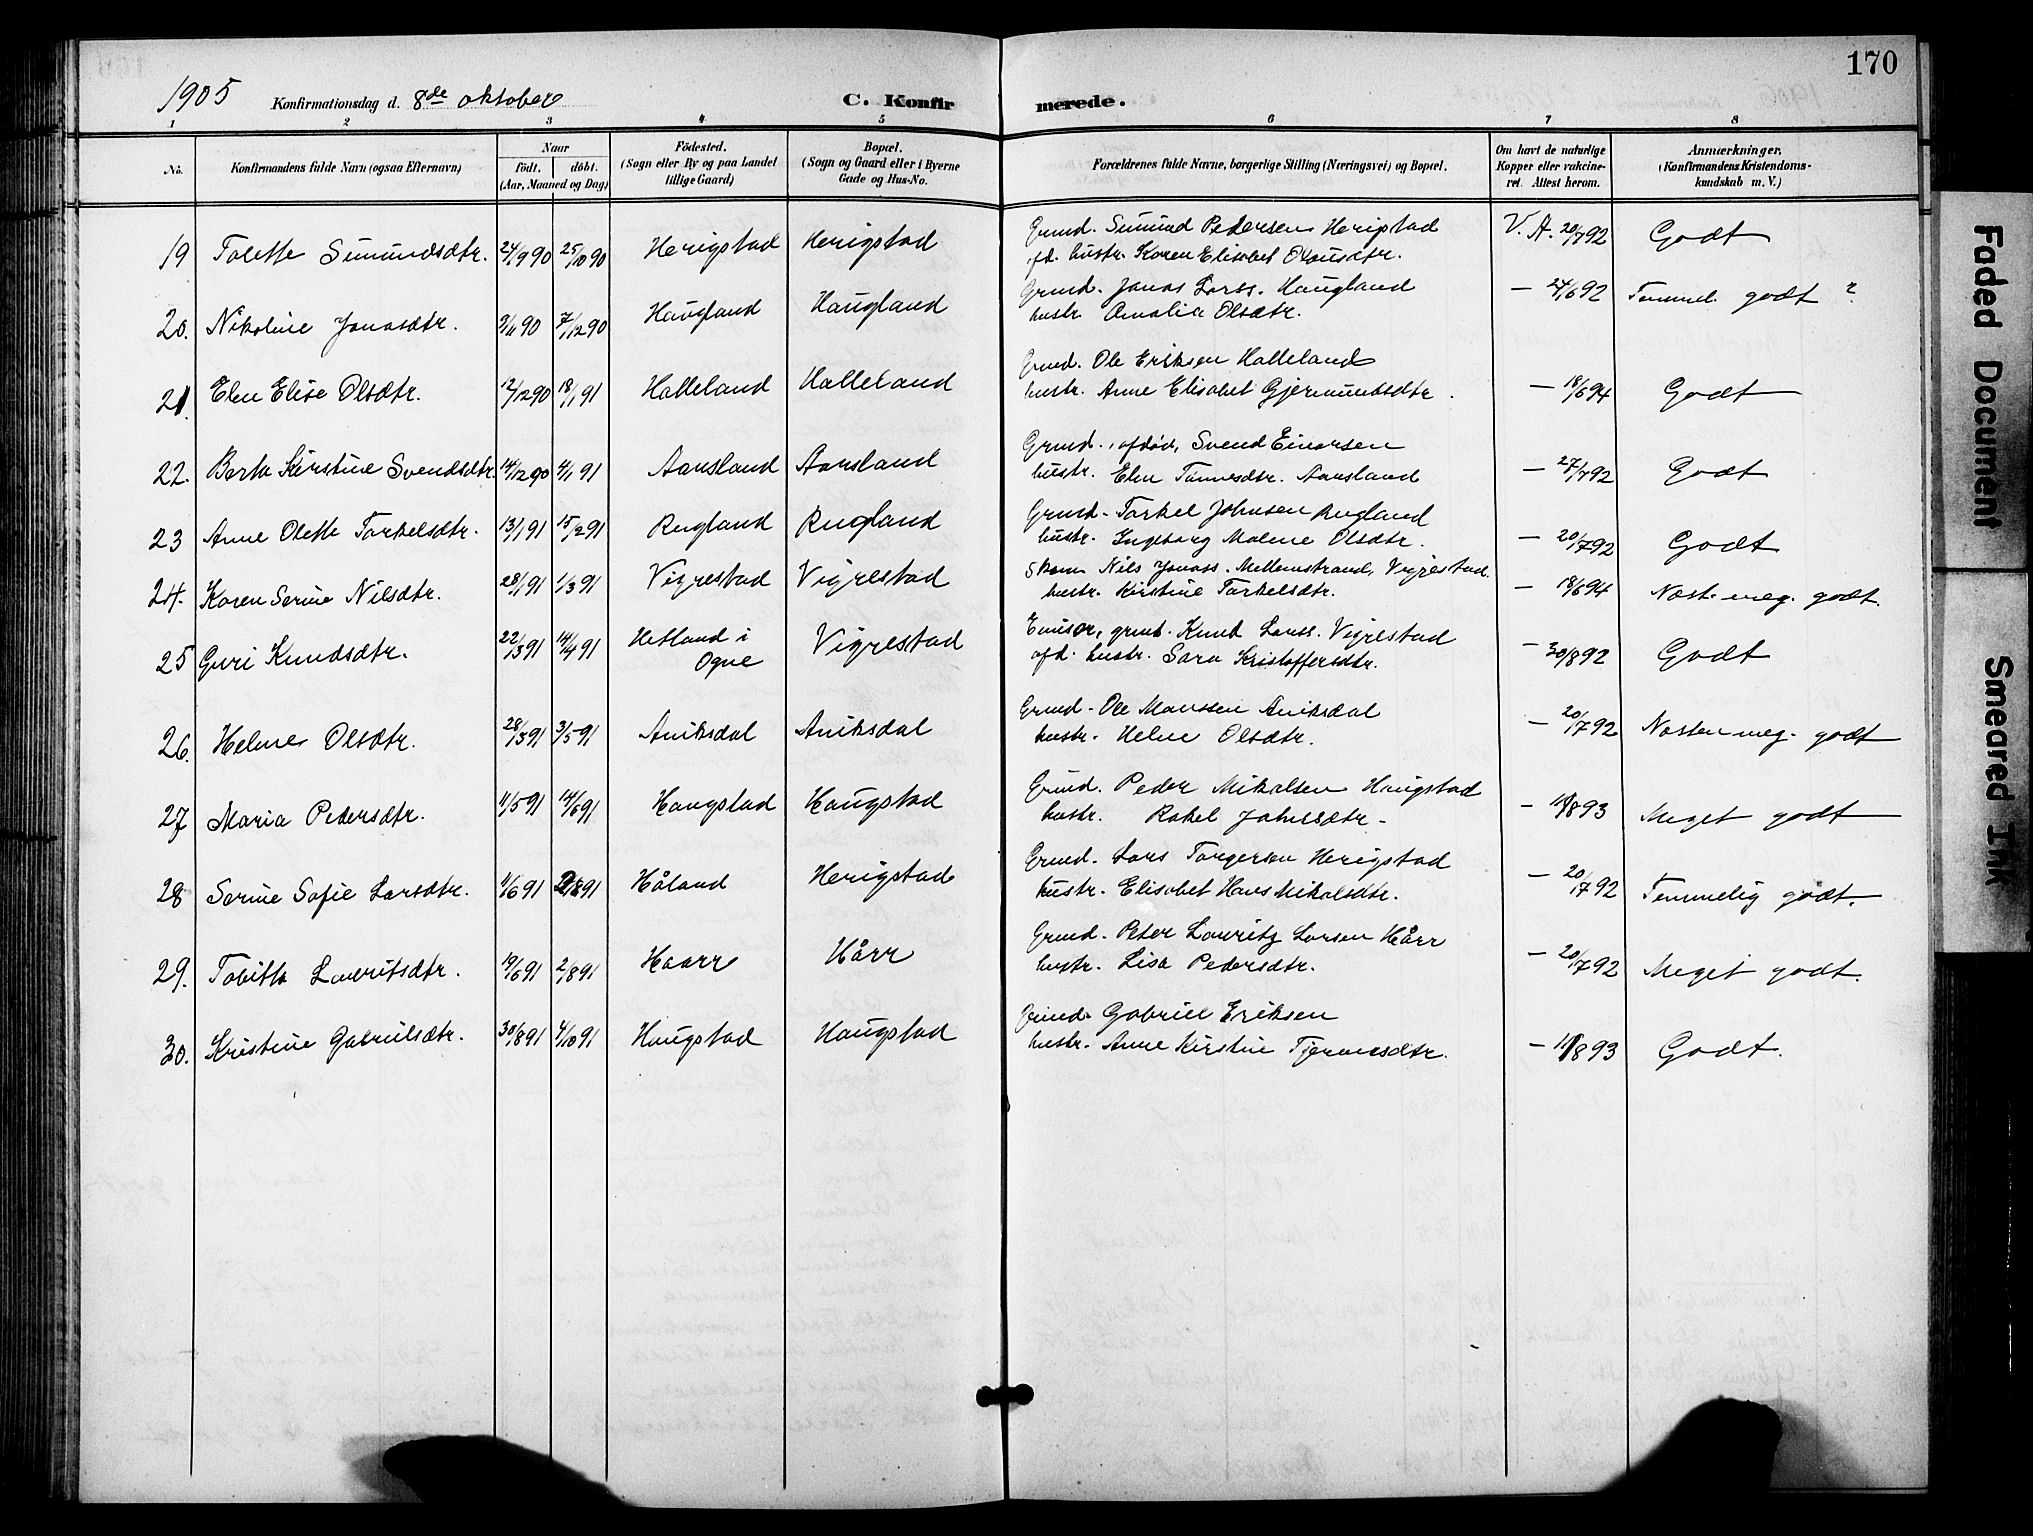 170
1905 Konfirmationsdag d. 8de oktober C. Konfir merede.
1 2 3 4 5 6 7 8
No. Konfirmandens fulde Navn (ogsaa Efternavn) Naar födt. döbt. (Aar, Maaned og Dag) Födested. (Sogn eller By og paa Landet tillige Gaard) Bopæl. (Sogn og Gaard eller i Byerne Gade og Hus-No. Forældrenes fulde Navne, borgerlige Stilling (Næringsvei) og Bopæl. Om havt de naturlige Kopper eller vakcineret. Attest herom. Anmærkninger. (Konfirmandens Kristendomskundskab m. V.)
19 Tolette Sumundsdtr. 24/9 90 25/10 90 Herigstad Herigstad Grmd. Sumund Pedersen Herigstad V. A. 20/7 92 Godt
afd. hustr. Karen Elisabet Olausdtr.
20. Nikoline Jonasdtr. 9/11 90 7/12 90 Haugland Haugland Grmd. Jonas Larss. Haugland — 24/6 92 Temmel. godt ?
hustr. Amalia Olsdtr.
21. Elen Elise Olsdtr. 12/12 90 18/1 91 Halleland Halleland Grmd. Ole Eriksen Halleland
hustr. Anne Elisabet Gjermundsdtr. — 18/6 94 Godt
22. Berta Kirstine Svendsdtr. 14/12 90 4/1 91 Aarsland Aarsland Grmd., afdød, Svend Einarsen
hustr. Elen Tønnesdtr. Aarsland — 27/7 92 Godt
23 Anne Olette Torkelsdtr. 13/1 91 15/2 91 Rugland Rugland Grmd. Torkel Johnsen Rugland
hustr. Ingeborg Malene Olsdtr. — 20/7 92 Godt
24. Karen Serine Nilsdtr. 28/1 91 1/3 91 Vigrestad Vigrestad Skom. Nils Jonass. Mellemstrand, Vigrestad.
hustr. Kirstine Torkelsdtr. — 18/6 94 Næst. meg. godt.
25 Guri Knudsdtr. 22/3 91 14/4 91 Hetland i Ogne Vigrestad Emissr, grmd. Knud Larss. Vigrestad
afd. hustr. Sara Kristoffersdtr. — 30/8 92 Godt
26. Helene Olsdtr. 28/3 91 3/5 91 Aniksdal Aniksdal Grmd. Ole Monssen Aniksdal
hustr. Helene Olsdtr. — 20/7 92 Næsten meg. godt
27 Maria Pedersdtr. 4/5 91 14/6 91 Haugstad Haugstad Grmd. Peder Mikalsen Haugstad
hustr. Rakel Johnsdtr. — 11/8 93 Meget godt
28 Serine Sofie Larsdtr. 4/6 91 2/8 91 Håland Herigstad Grmd. Lars Torgersen Herigstad
hustr. Elisabet Hans Mikalsdtr. — 20/7 92 Temmelig godt.
29. Tobitta Lauritsdtr. 19/6 91 2/8 91 Haarr Hårr Grmd. Peter Lauritz Larsen Hårr
hustr. Lisa Pedersdtr. — 20/7 92 Meget godt.
30. Kristine Gabrielsdtr. 30/8 91 4/10 91 Haugstad Haugstad Grmd. Gabriel Eriksen
hustr. Anne Kirstine Tjerandsdtr. — 11/8 93 Godt.
Faded Document
Smeared Ink